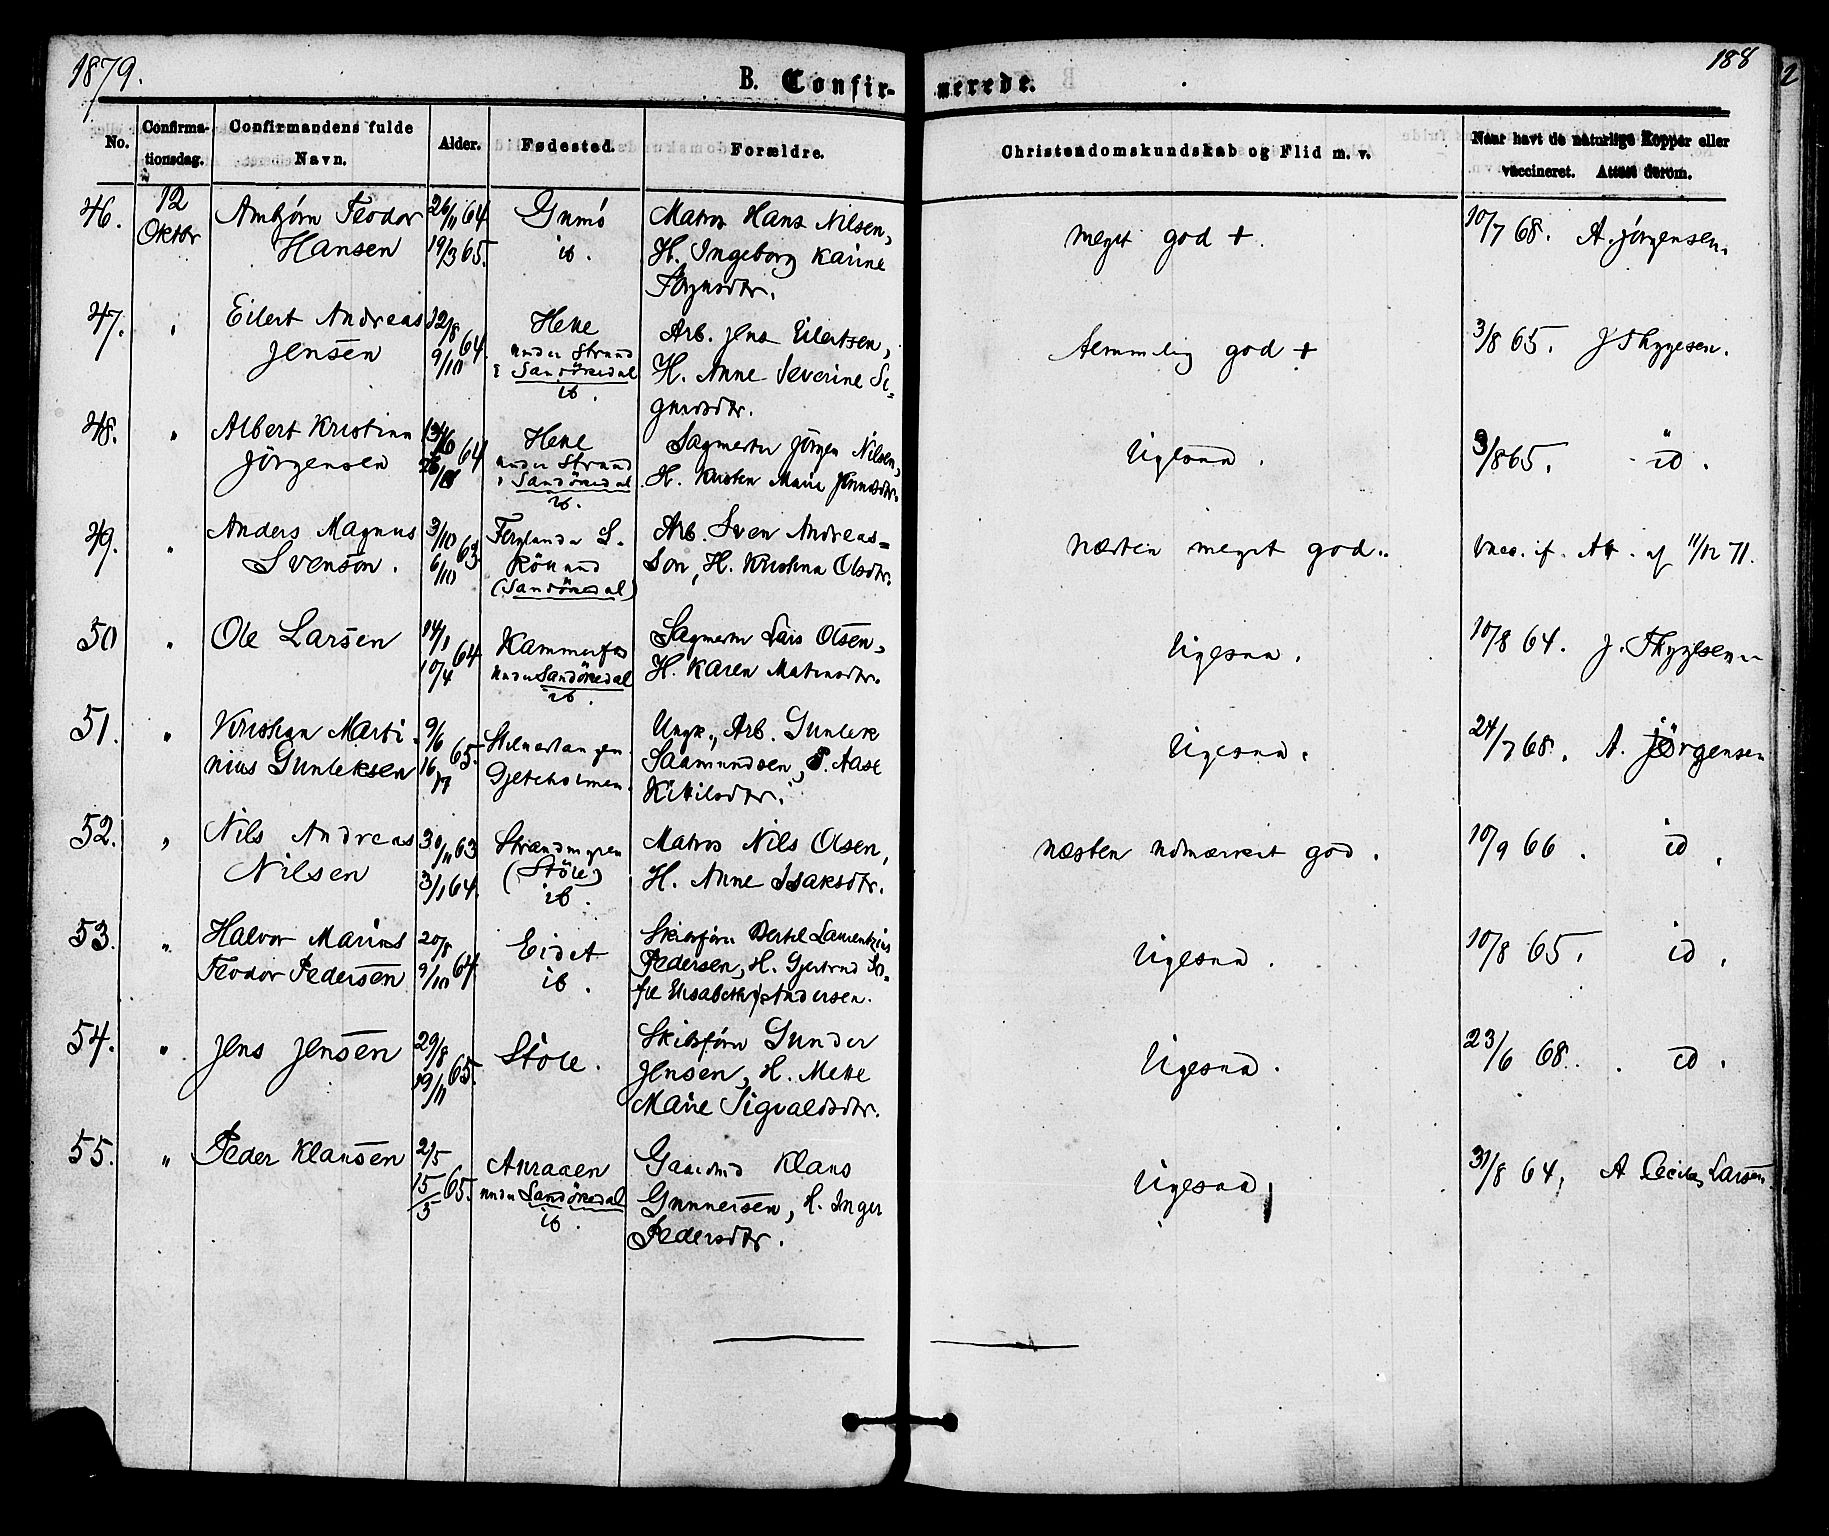 1879.
188
2
B. Confir-
merede.
No.
Confirma-
tionsdag.
Confirmandens fulde
Navn.
Alder.
Fødested.
Forældre.
Christendomskundskab og Flid m. v.
Naar havt de naturlige Kopper eller
vaccineret. Attest derom.
46.
12
Oktbr
Teodor
Hansen
26/11 64
19/3 65.
ib.
Matros Hans Nilsen,
H. Ingeborg Karine
meget god +.
10/7 68. A. Jørgensen.
47.
"
Eilert Andreas
Jensen
12/8
64.
9/10
Helle
under Strand
i Sandökedal
ib.
Arb. Jens Eilertsen,
H. Anne Severine Si-
temmelig god +
3/8 65. J Thygesen.
48.
"
Albert Kristian
Jørgensen
64
Helle
under Strand
i Sandökedal
ib.
Sagmester Jörgen Nilsen,
H. Kirsten Marie
ligesaa.
3/8 65. id.
49.
"
Anders Magnus
Svenson.
3/10
63.
6/10
(Sandökedal)
Arb. Sven Andreas-
Son, H. Kristina Olsdtr.
næsten meget god.
Vacc. if. Att. af 11/12 71.
50
"
Ole Larsen
14/1
64
10/4
Kammerfos
under Sandökedal
ib.
Sagmester Lars Olsen,
H. Karen
ligesaa.
10/8 64. J. Thygesen
51.
"
Kristian Marti-
nius Gunleksen
9/6
65.
16/
Ungk., Arb. Gunlek
Saamundsen, P. Aase
Kittilsdtr.
ligesaa.
24/7 68. A. Jørgensen
52.
"
Nils Andreas
Nilsen
30/11 63
3/1 64.
(Stöle)
ib.
Matros Nils Olsen,
H. Anne Isaksdtr.
næsten udmærket god.
10/9 66. id.
53.
"
Halvor Marius
Teodor Pedersen
20/8
64
9/10
Eidet
ib.
Skibsfører Bertel Laurentzius
Pedersen, H. Gjertrud So-
fie Elisabeth Andersen.
ligesaa.
10/8 65. id.
54.
"
Jens Jensen
29/8
65.
19/11
Stöle.
Skibsfører Gunder
Jensen, H. Mette
Marie Sigvaldsdtr.
ligesaa.
23/6 68. id.
55.
"
Peder Klausen
2/5
15
65.
5
under Sandökedal
ib.
Gaardmd Klaus
Gunnersen, H. Inger
Pedersdtr.
ligesaa
31/8 64. A Cecilie Larsen.